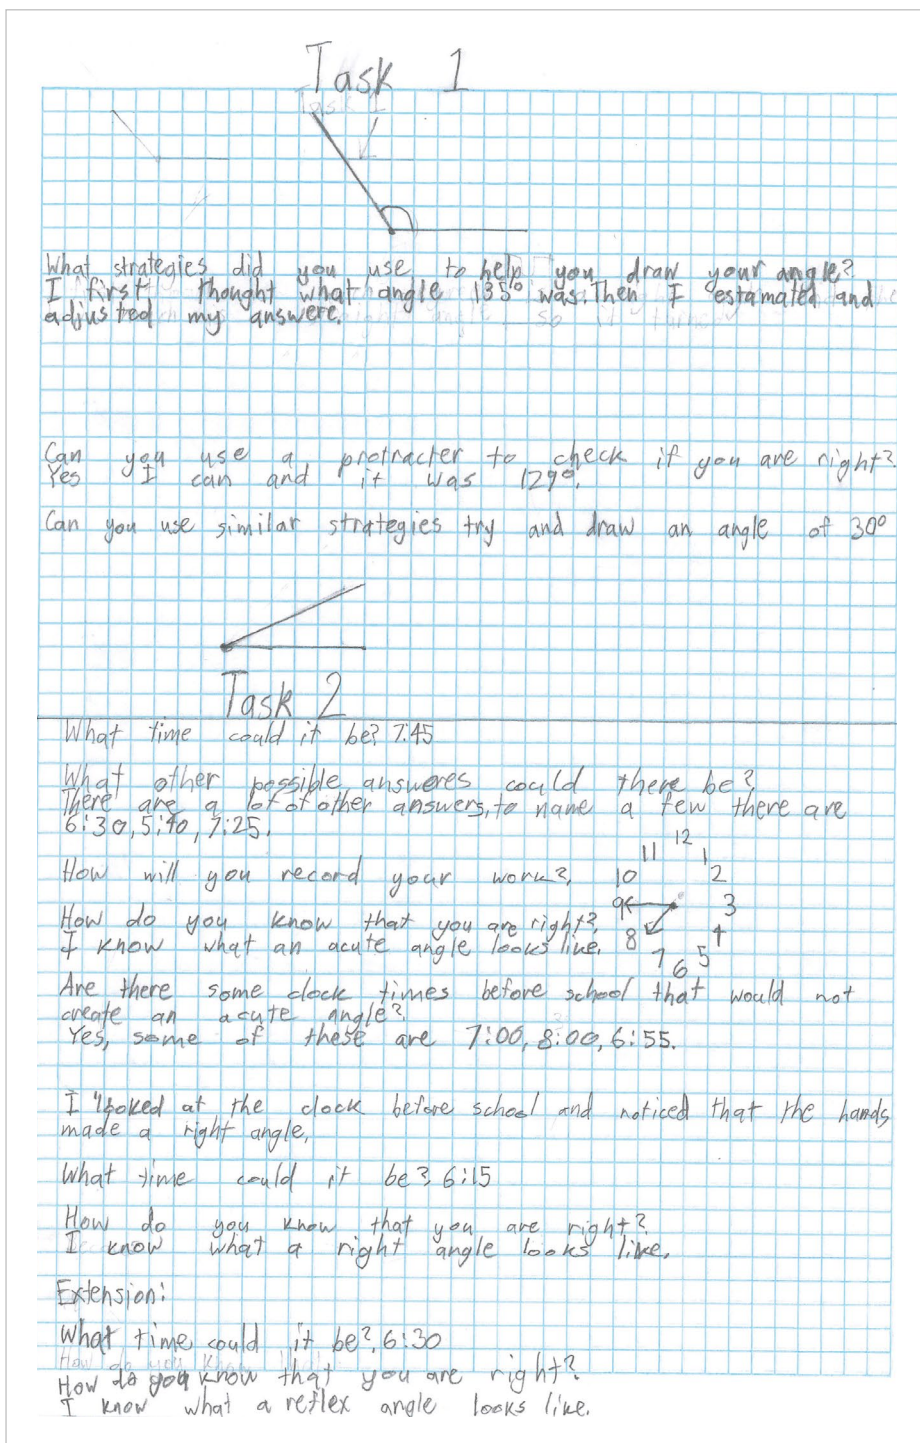 Task 1
What strategies did you use to help you draw your angle?
I first thought what angle 135° was. Then I estamated and
adjusted my answere.
Can you use a protracter to check if you are right?
Yes I can and it was 129°.
Can you use similar strategies try and draw an angle of 30°
Task 2
What time could it be? 7:45
What other possible answeres could there be?
There are a lot of other answers, to name a few there are
6:30, 5:40, 7:25.
How will you record your work?
12
11 1
10 2
9 3
8 4
7 6 5
How do you know that you are right?
I know what an acute angle looks like.
Are there some clock times before school that would not
create an acute angle?
Yes, some of these are 7:00, 8:00, 6:55.
I looked at the clock before school and noticed that the hands
made a right angle,
What time could it be? 6:15
How do you know that you are right?
I know what a right angle looks like.
Extension:
What time could it be? 6:30
How do you know that you are right?
I know what a reflex angle looks like.